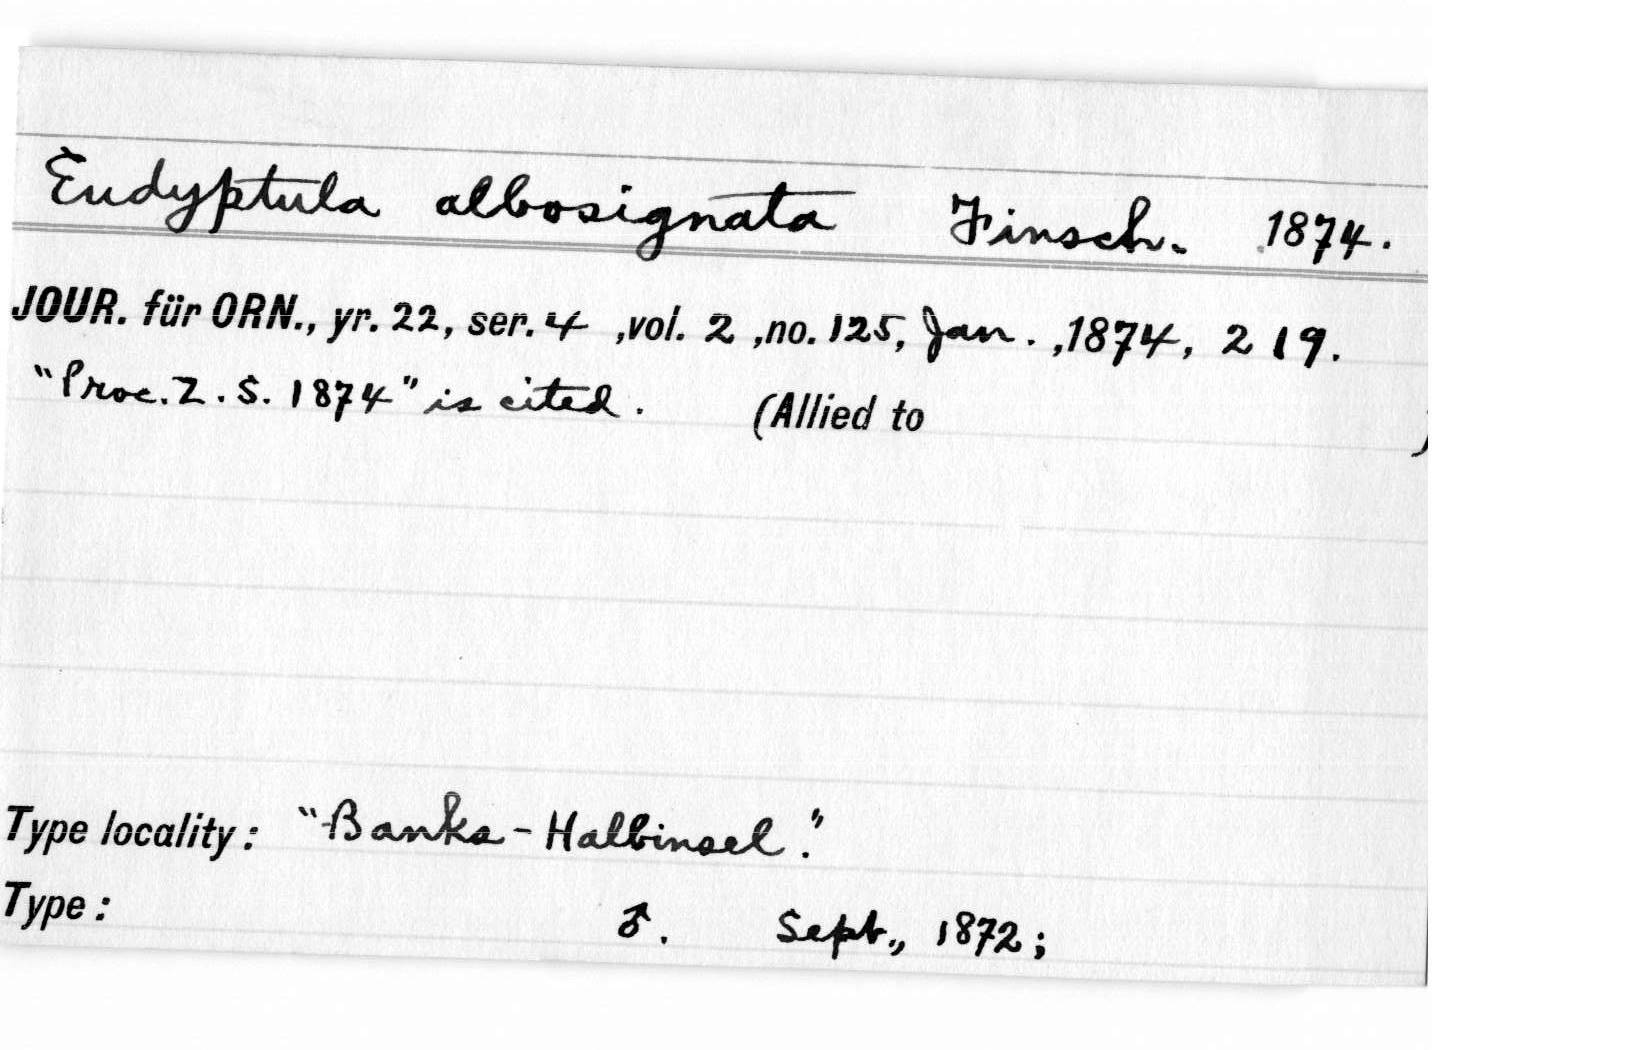 Eudyptula albosignata Finsch. 1874.
JOUR. für ORN., yr. 22, ser. 4 ,vol. 2 ,no. 125, Jan. ,1874, 219.
"Proc. Z. S. 1874" is cited. (Allied to )
Type locality: "Banks-Halbinsel."
Type: ♂. Sept., 1872;